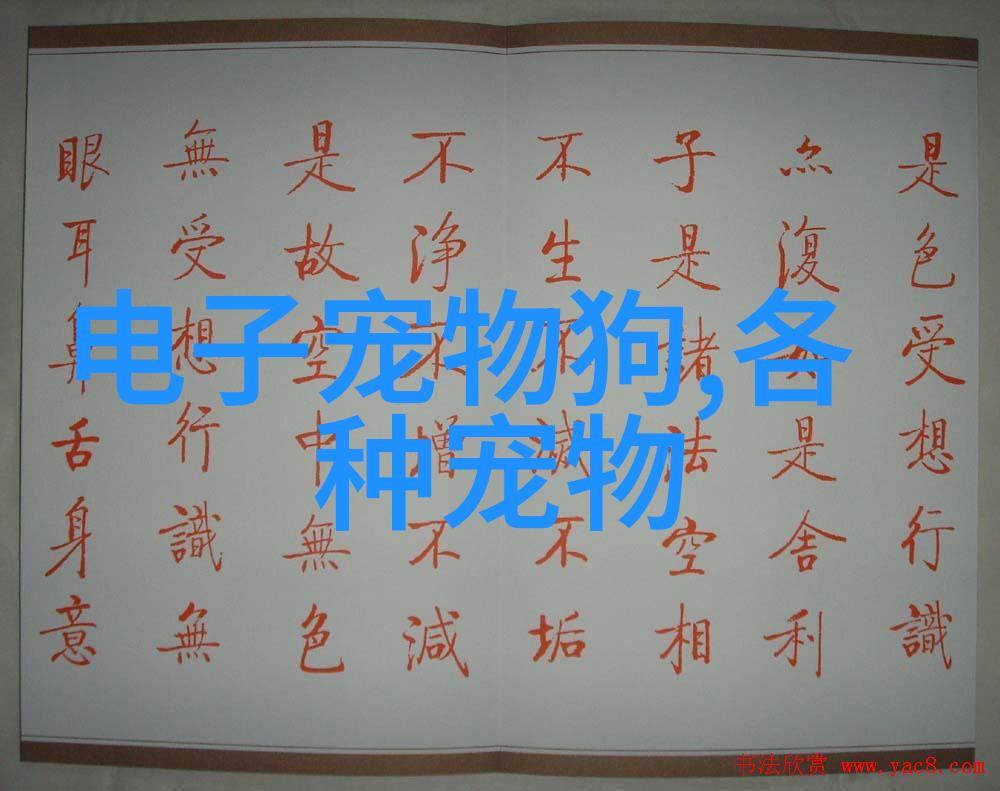 是色受想行識
亦復如是舍利
子是諸法空相
不生不滅不垢
不净不增不減
是故空中無色
無受想行識無
眼耳鼻舌身意
电子宠物狗,各
种宠物
书法欣赏 www.yac8.com